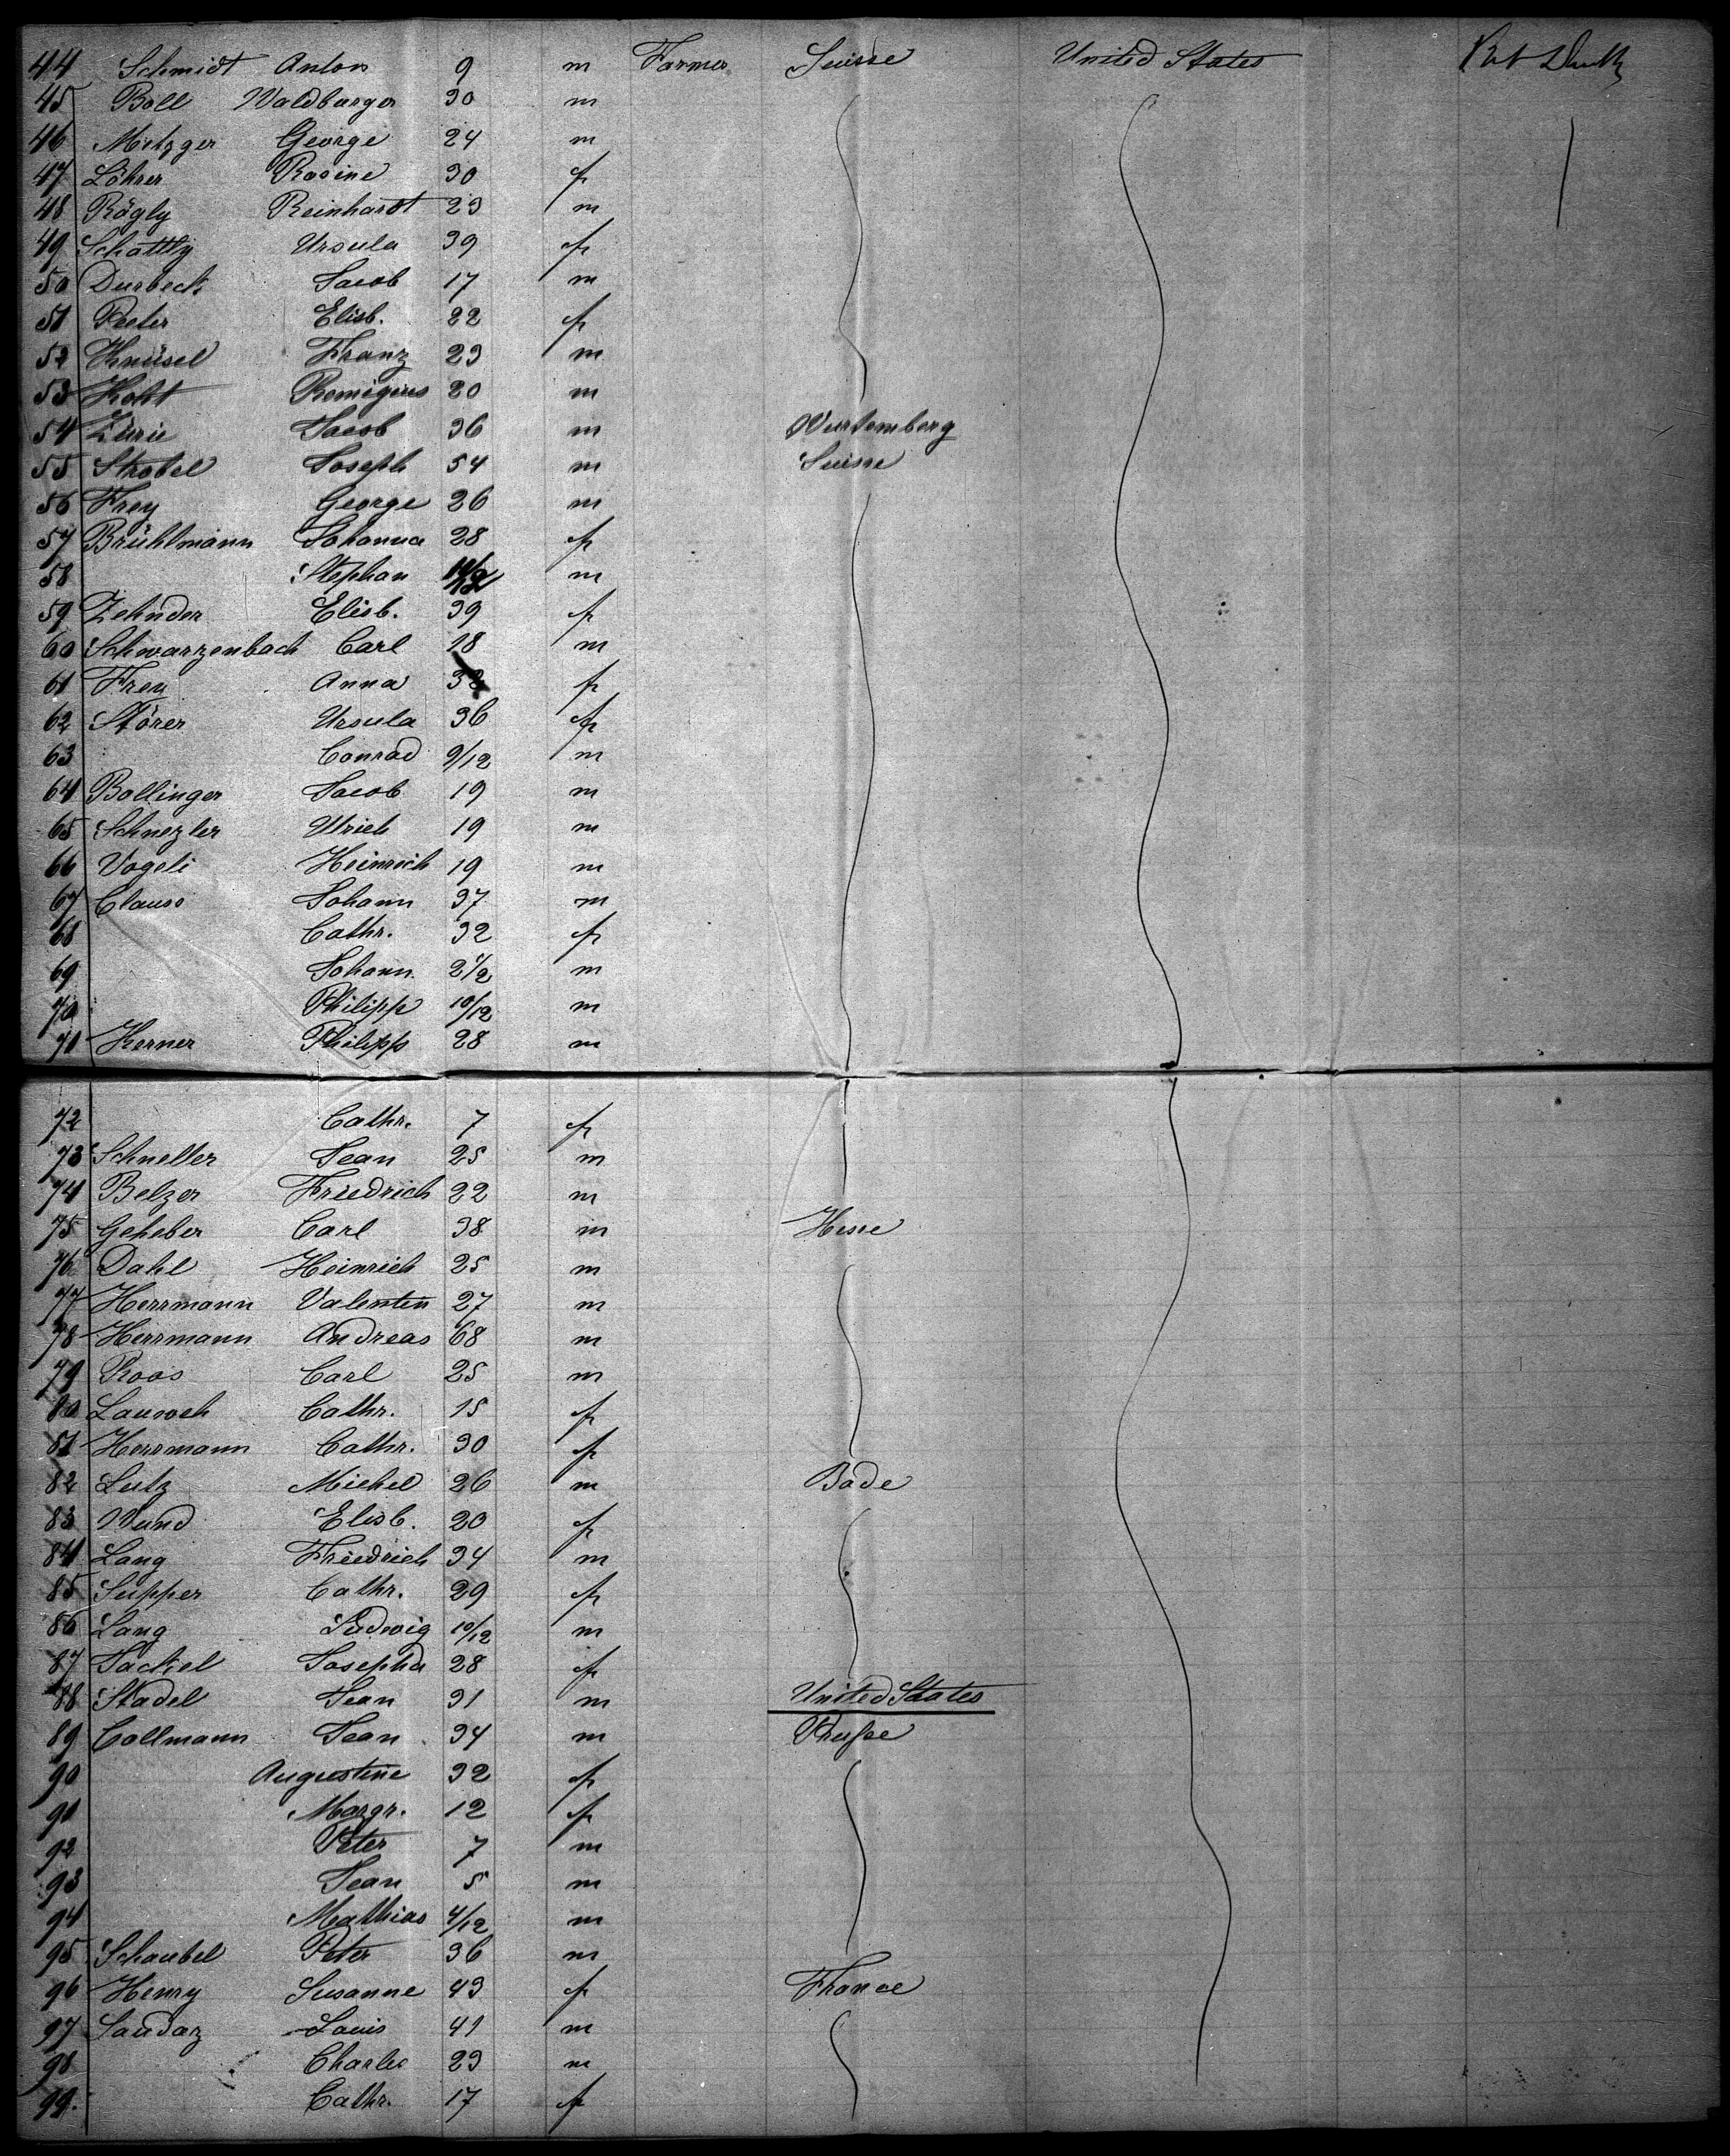 44 Schmidt Anton 9 m Farmer Suisse United States
45 Boll Waldburga 30 m
46 Metzger George 24 m
47 Löhrer Rosine 30 f
48 Rögly Reinhardt 23 m
49 Schättly Ursula 39 f
50 Durbeck Jacob 17 m
51 Peter Elisb. 22 f
52 Knüsel Franz 23 m
53 Kohl Remigius 20 m
54 Zürie Jacob 36 m Wurtemberg
55 Strobel Joseph 54 m Suisse
56 Frey George 26 m
57 Brühlmann Johanna 28 f
58 Stephan m
59 Zehnder Elisb. 39 f
60 Schwarzenbach Carl 18 m
61 Frey Anna f
62 Störer Ursula 36 f
63 Conrad 9/12 m
64 Bollinger Jacob 19 m
65 Schnezler Ulrich 19 m
66 Vogeli Heinrich 19 m
67 Clauss Johann 37 m
68 Cathr. 32 f
69 Johann 2 1/2 m
70 Philipp 10/12 m
71 Kerner Philipp 28 m
72 Cathr. 7 f
73 Schneller Jean 25 m
74 Belzer Friedrich 22 m
75 Geheber Carl 38 m Hesse
76 Dahl Heinrich 25 m
77 Herrmann Valentin 27 m
78 Herrmann Andreas 68 m
79 Roos Carl 25 m
80 Cathr. 15 f
81 Herrmann Cathr. 30 f
82 Lutz Michel 26 m Bade
83 Wund Elisb. 20 f
84 Lang Friedrich 34 m
85 Supper Cathr. 29 f
86 Lang Ludwig 10/12 m
87 Jackel Josepha 28 f
88 Stadel Jean 31 m United States
89 Collmann Jean 34 m Prusse
90 Augustine 32 f
91 Margr. 12 f
92 Peter 7 m
93 Jean 5 m
94 Mathias 4/12 m
95 Schaubel Peter 36 m
96 Henry Susanne 43 f France
97 Jaudaz Louis 41 m
98 Charles 23 m
99. Cathr. 17 f